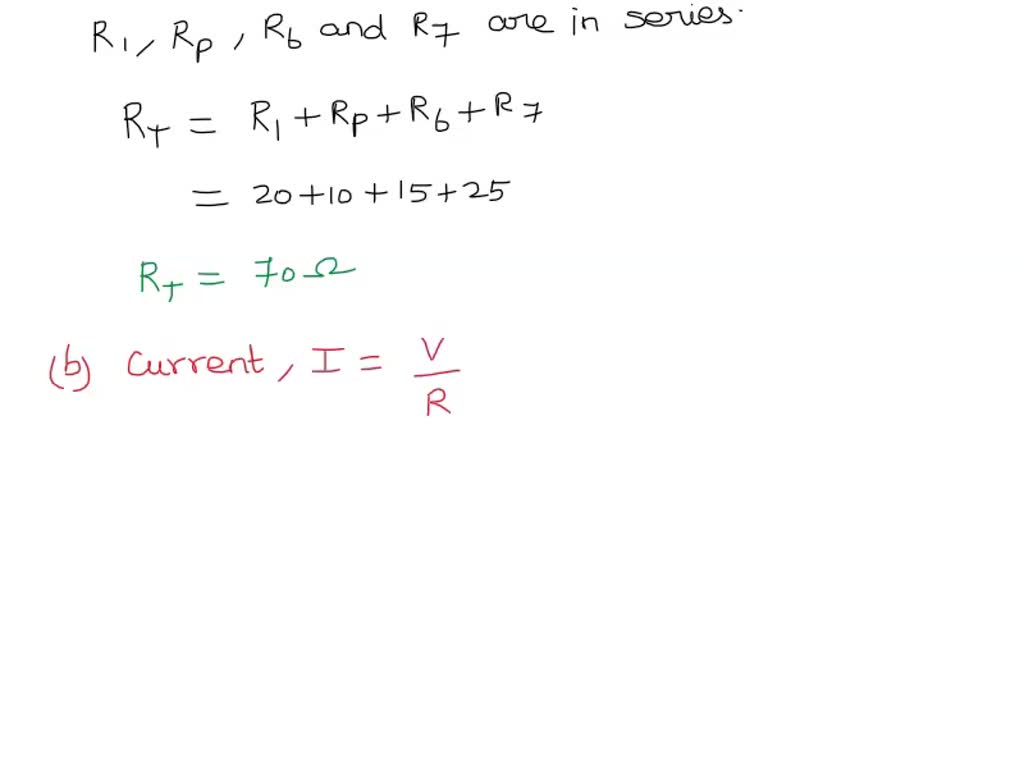 R₁, Rₚ, R₆ and R₇ are in series.
R_T = R₁ + Rₚ + R₆ + R₇
= 20 + 10 + 15 + 25
R_T = 70 Ω
(b) Current, I = V/R